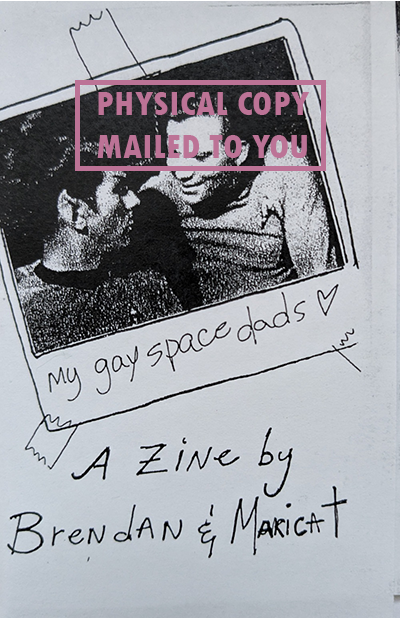 PHYSICAL COPY
MAILED TO YOU
my gay space dads ♡
A Zine by
Brendan & Maricat